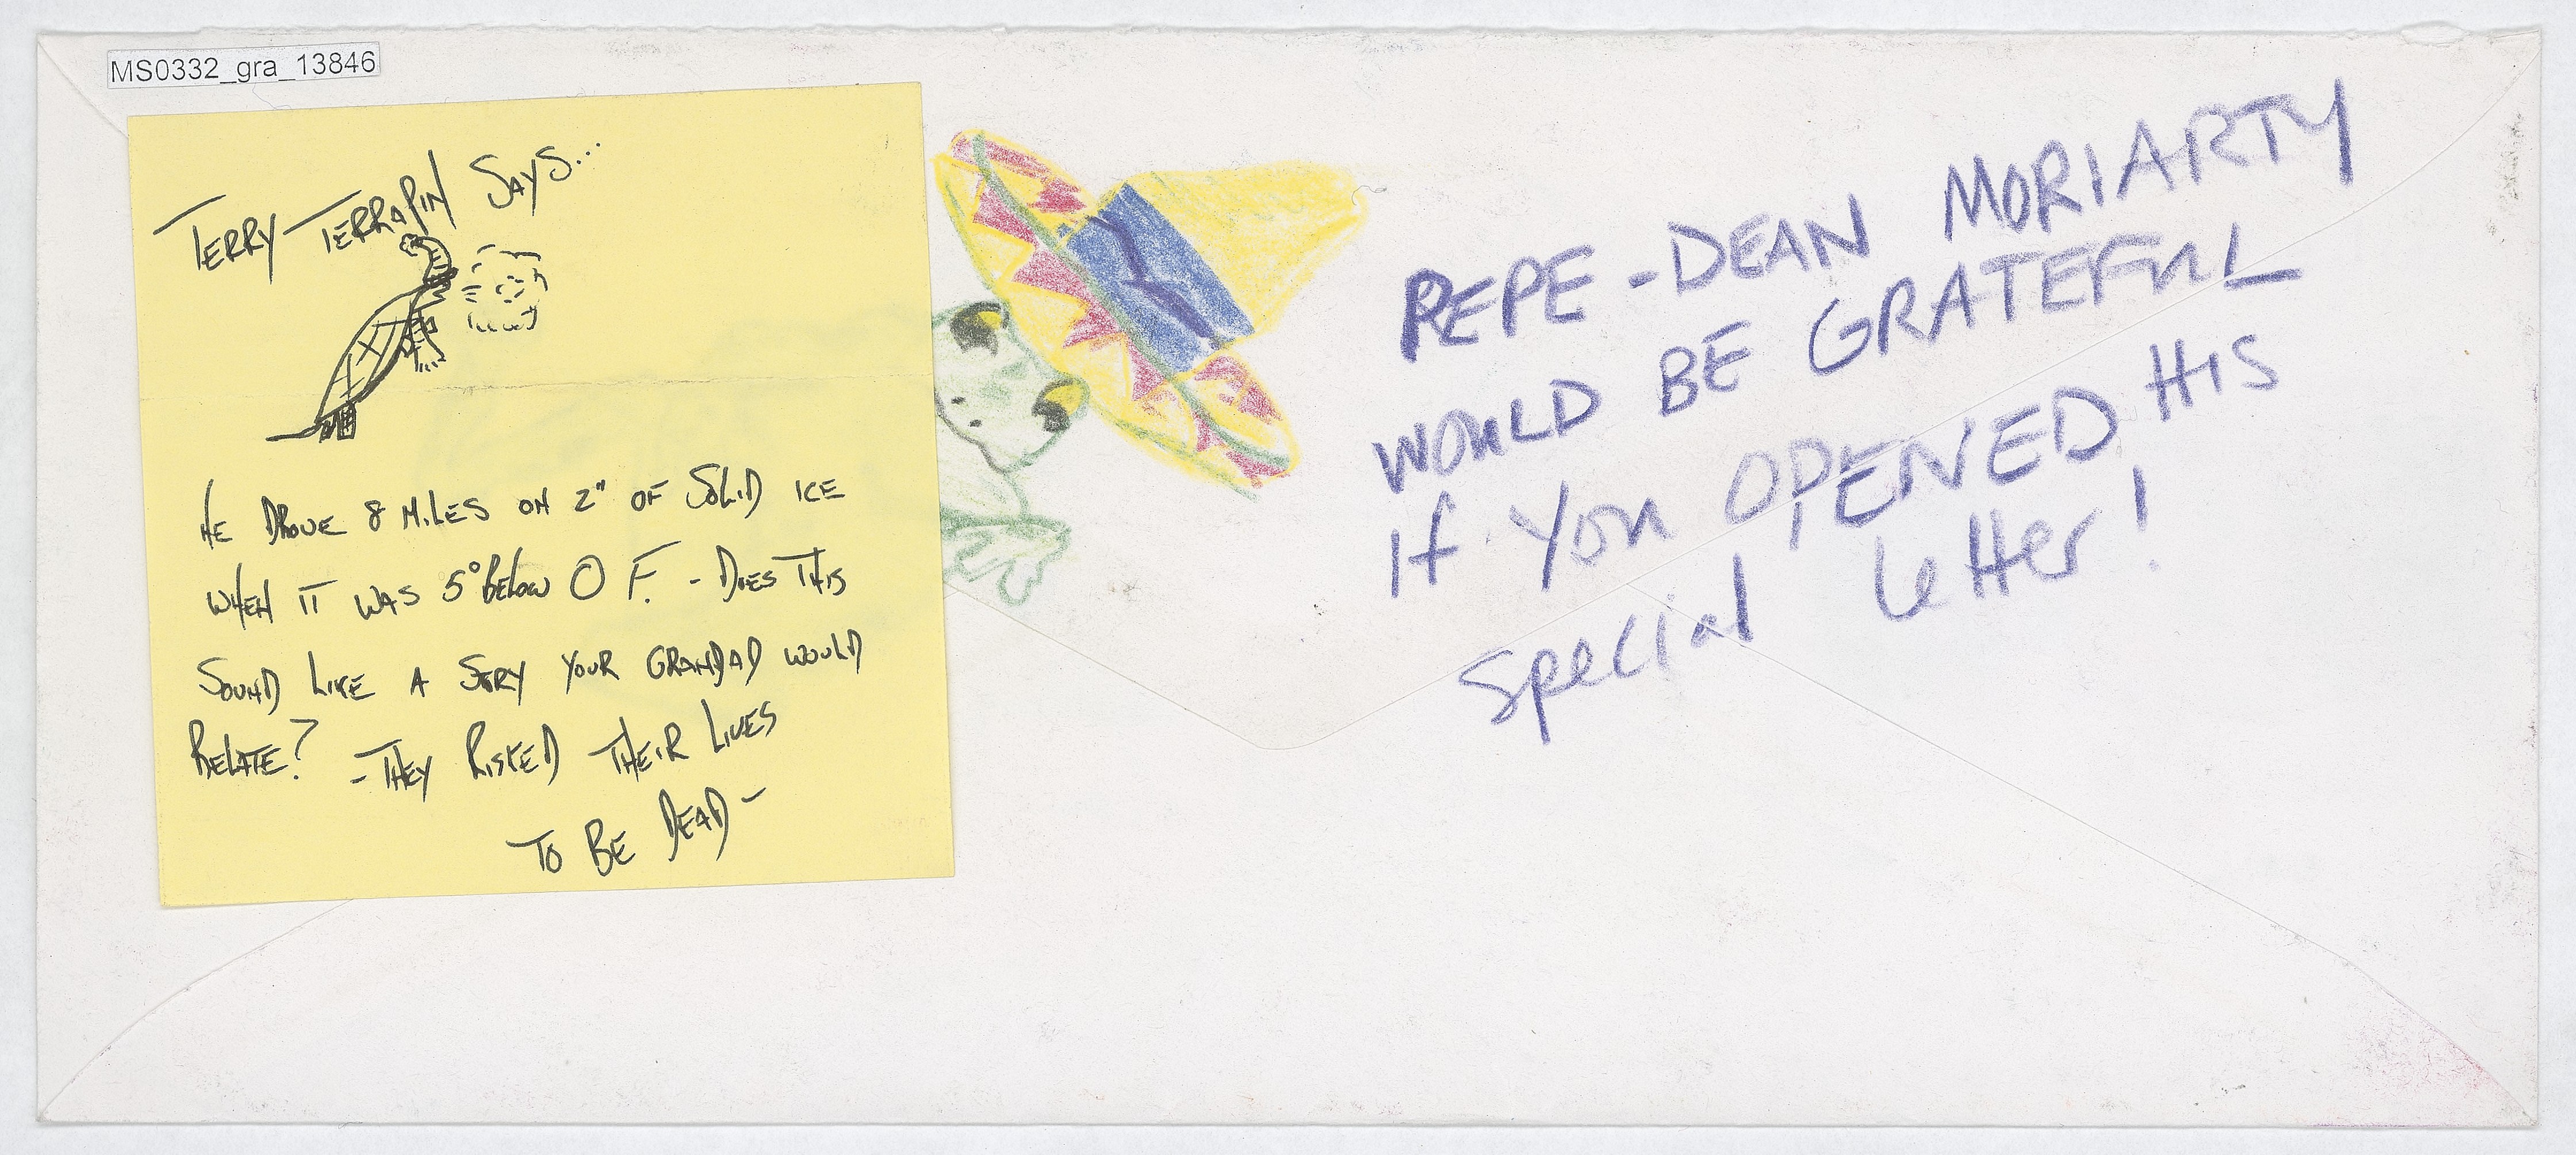 MS0332_gra_13846
TERRY TERRAPIN SAYS...
HE DROVE 8 MILES ON 2" OF SOLID ICE
WHEN IT WAS 5° BELOW O F. - DOES THIS
SOUND LIKE A STORY YOUR GRANDAD WOULD
RELATE? - THEY RISKED THEIR LIVES
TO BE DEAD -
PEPE - DEAN MORIARTY
WOULD BE GRATEFUL
If You OPENED HIS
Special Letter!